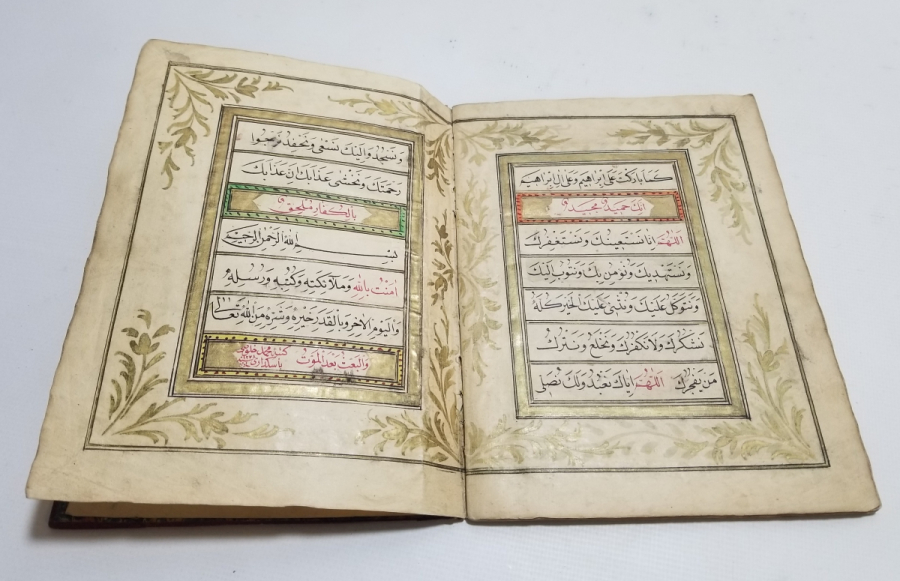 كما باركت على ابراهيم وعلى ال ابراهيم
انك حميد مجيد
اللهم انا نستعينك ونستغفرك
ونستهديك ونؤمن بك ونتوب اليك
ونتوكل عليك ونثني عليك الخير كله
نشكرك ولا نكفرك ونخلع ونترك
من يفجرك اللهم اياك نعبد ولك نصلي
ونسجد واليك نسعى ونحفد نرجوا
رحمتك ونخشى عذابك ان عذابك
بالكفار ملحق
بسم الله الرحمن الرحيم
امنت بالله وملائكته وكتبه ورسله
واليوم الاخر وبالقدر خيره وشره من الله تعالى
والبعث بعد الموت
كتبه محمد